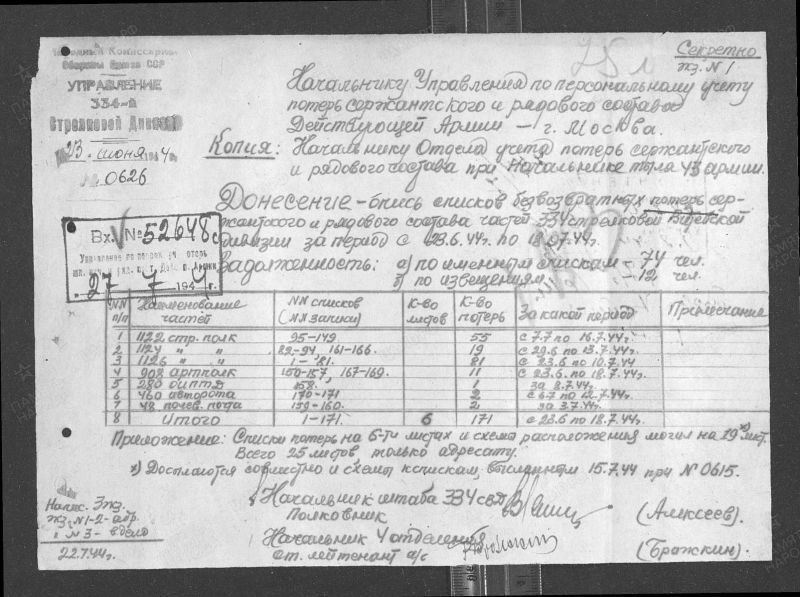 Секретно
Экз. № 1
Народный Комиссариат
Обороны Союза ССР
УПРАВЛЕНИЕ
334-й
Стрелковой Дивизии
23 июня 1944г.
№ 0626
25 л
Начальнику Управления по персональному учету
потерь сержантского и рядового состава
Действующей Армии — г. Москва.
Копия: Начальнику Отдела учета потерь сержантского
и рядового состава при Начальнике тыла 43 армии.
Донесение - опись списков безвозвратных потерь сер-
жантского и рядового состава частей 334 стрелковой Витебской
дивизии за период с 23.6.44г. по 18.07.44г.
Задолженность: а) по именным спискам — 74 чел.
б) по извещениям — 12 чел.
Вх. № 52648с
27 7 1944г.
NN п/п Наименование частей NN списков (NN записи) К-во листов К-во потерь За какой период Примечание
1 1122 стр. полк 95-149 55 с 7.7 по 16.7.44г.
2 1124 " " 82-94 161-166. 19 с 29.6 по 13.7.44г.
3 1126 " " 1-81. 81 с 23.6 по 10.7.44
4 908 артполк 150-157, 167-169. 11 с 23.6. по 18.7.44г.
5 280 оиптд 158. 1 за 8.7.44г.
6 460 авторота 170-171 2 с 6.7 по 12.7.44г.
7 48 почев. погд 159-160. 2 за 3.7.44г.
8 Итого 1-171. 6 171 с 23.6 по 18.7.44г.
Приложение: Списки потерь на 6-ти листах и схема расположения могил на 19 х) лист.
Всего 25 листов только адресату.
х) Досылаются совместно и схемы к спискам, высланным 15.7.44 при № 0615.
Начальник штаба 334 свд
Полковник (Алексеев).
Начальник 4 отделения
ст. лейтенант а/с (Бражкин).
Напис. 3 экз.
экз. № 1-2- адр.
" № 3- в дело
22.7.44г.